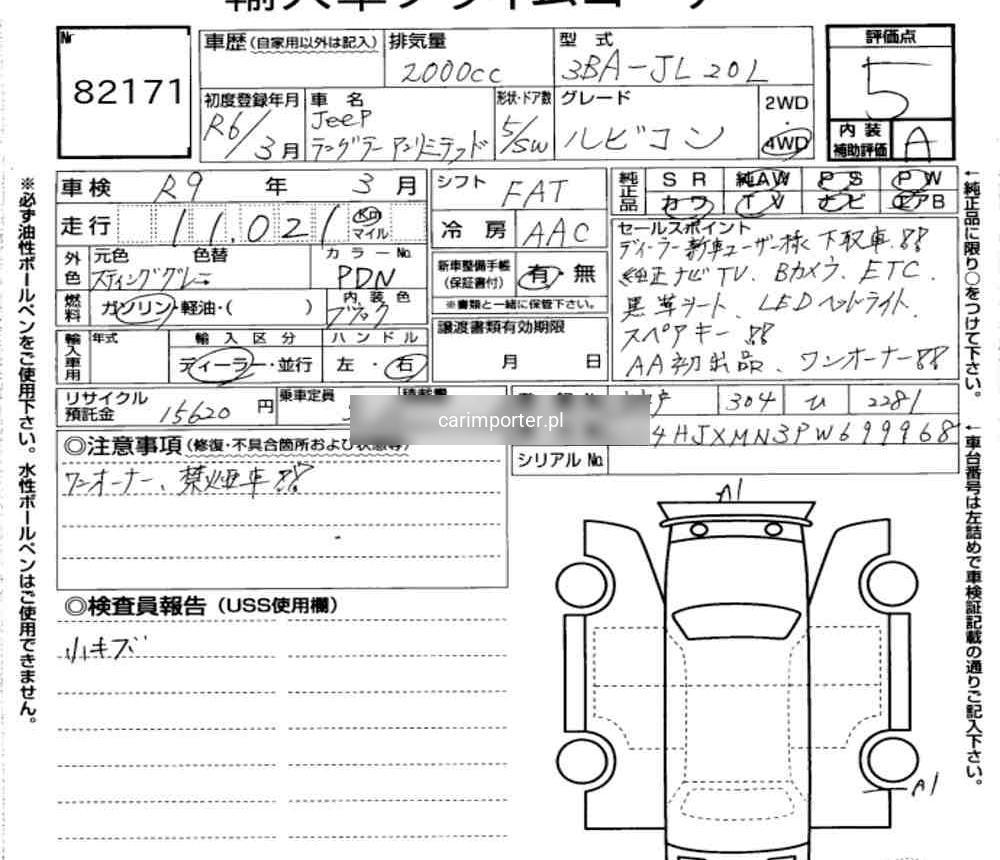 Nr
82171
車歴(自家用以外は記入)
排気量
2000cc
型式
3BA-JL20L
評価点
5
初度登録年月
R6/3月
車名
Jeep
ラングラーアンリミテッド
形状・ドア数
5/SW
グレード
ルビコン
2WD
・
4WD
内装
補助評価
A
車検 R9 年 3 月
シフト
FAT
純正品
SR 純AW PS PW
カワ TV ナビ エアB
走行 11.021 Km マイル
冷房
AAC
セールスポイント
ディーラー新車ユーザー様下取車!!
純正ナビTV、Bカメラ、ETC、
黒革シート、LEDヘッドライト、
スペアキー!!
AA初出品、ワンオーナー!!
外色
元色 色替
スティンググレー
カラーNo.
PDN
新車整備手帳
(保証書付)
有・無
※書類と一緒に保管下さい。
燃料
ガソリン・軽油・( )
内装色
ブラック
譲渡書類有効期限
月 日
輸入車用
年式
輸入区分
ディーラー・並行
ハンドル
左・右
リサイクル
預託金
15620 円
乗車定員
304 ひ 2281
carimporter.pl
4HJXMN3PW699968
シリアルNo.
◎注意事項(修復・不具合箇所および状態等)
ワンオーナー、禁煙車!!
◎検査員報告(USS使用欄)
小キズ
A1
A1
※必ず油性ボールペンをご使用下さい。水性ボールペンはご使用できません。
←純正品に限り○をつけて下さい。
←車台番号は左詰めで車検証記載の通りご記入下さい。